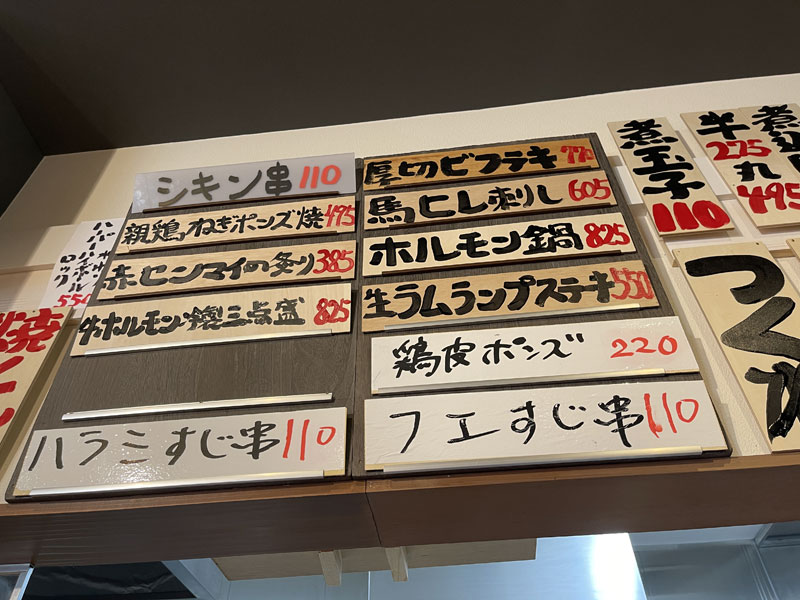 シキン串 110
親鶏ねぎポンズ焼 495
赤センマイの炙り 385
牛ホルモン燻製三点盛 825
ハラミすじ串 110
厚切ビフテキ 770
馬ヒレ刺し 605
ホルモン鍋 825
生ラムランプステキ 550
鶏皮ポンズ 220
フエすじ串 110
煮玉子 110
牛
275
丸
煮込
495
つく
ロック
550
焼